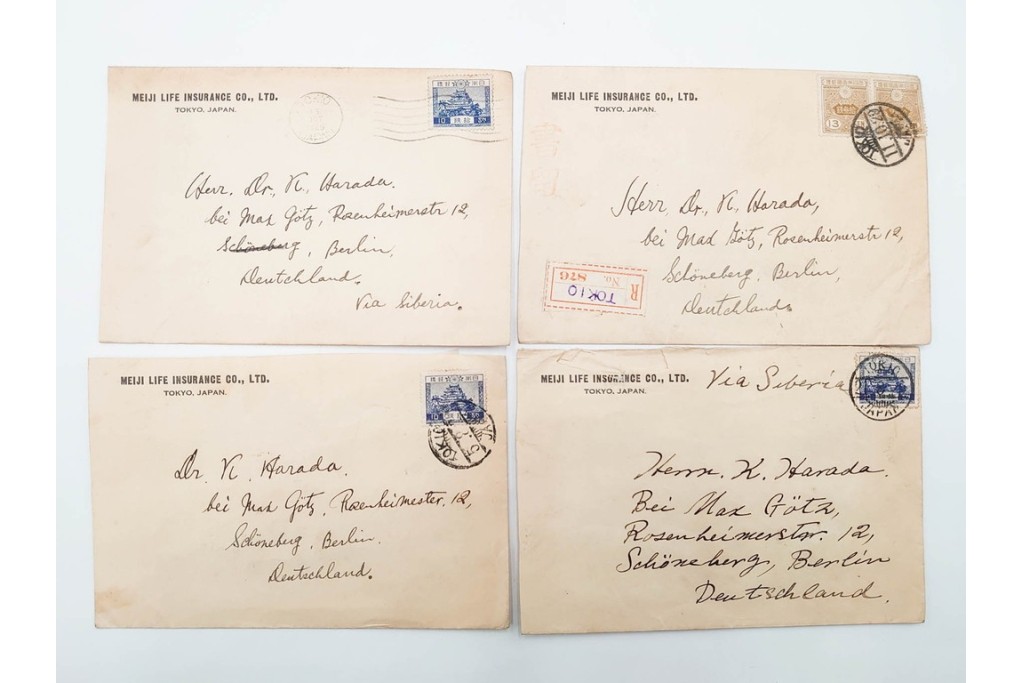 MEIJI LIFE INSURANCE CO., LTD.
TOKYO, JAPAN.
10
Herr. Dr. K. Harada.
bei Max Götz, Rosenheimerstr 12,
Schöneberg, Berlin,
Deutchland.
Via Siberia.
MEIJI LIFE INSURANCE CO., LTD.
TOKYO, JAPAN.
13
Herr, Dr. K. Harada,
bei Max Götz, Rosenheimerstr 12,
Schöneberg, Berlin,
Deutchland.
R
No. 876
TOKIO
MEIJI LIFE INSURANCE CO., LTD.
TOKYO, JAPAN.
10
TOKIO
Dr. K. Harada.
bei Max Götz, Rosenheimester. 12,
Schöneberg, Berlin.
Deutschland.
MEIJI LIFE INSURANCE CO., LTD.
TOKYO, JAPAN.
Via Siberia
TOKIO
JAPAN
Herrn. K. Harada.
Bei Max Götz,
Rosenheimerstr. 12,
Schöneberg, Berlin
Deutschland.